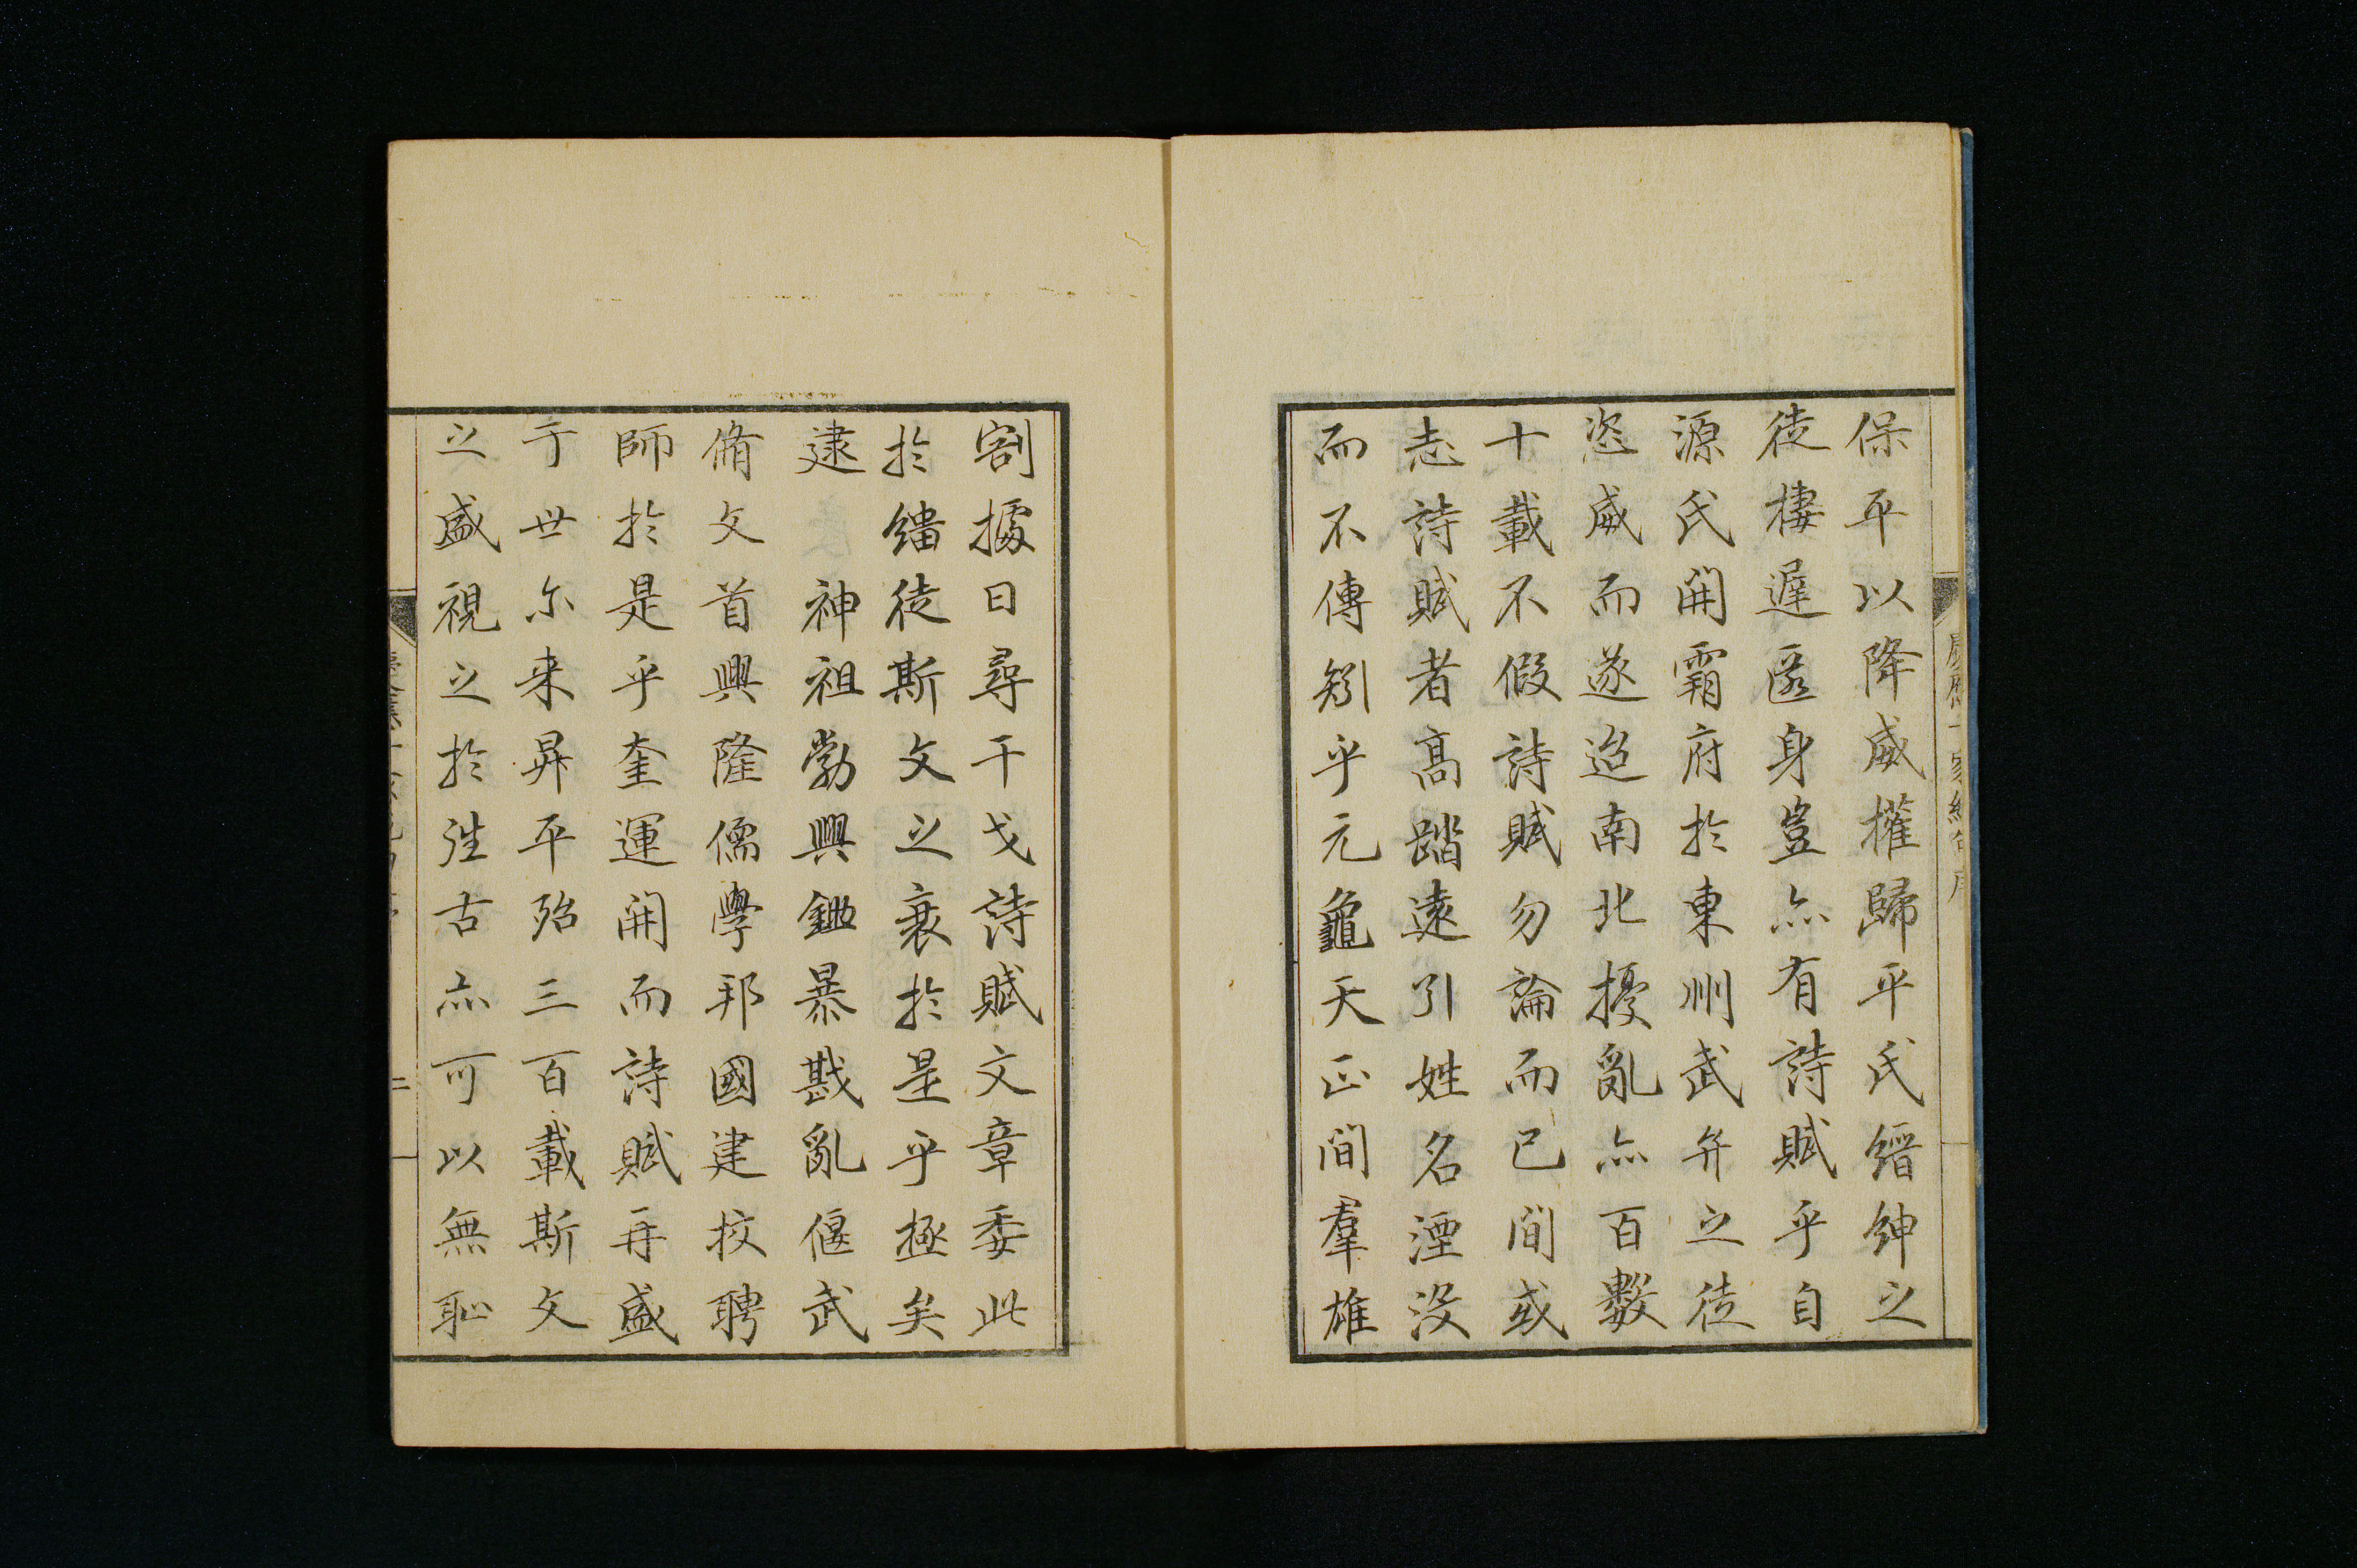 保平以降威權歸平氏縉紳之
徒棲遲匿身豈亦有詩賦乎自
源氏開霸府於東州武弁之徒
恣威而遂迨南北擾亂亦百數
十載不假詩賦勿論而已間或
志詩賦者高踏遠引姓名湮没
而不傳矧乎元龜天正間羣雄
割據日尋干戈詩賦文章委此
於緇徒斯文之衰於是乎極矣
逮 神祖勃興鋤暴戡亂偃武
脩文首興隆儒學邦國建挍聘
師於是乎奎運開而詩賦再盛
于世尓来昇平殆三百載斯文
之盛視之於往古亦可以無恥
二